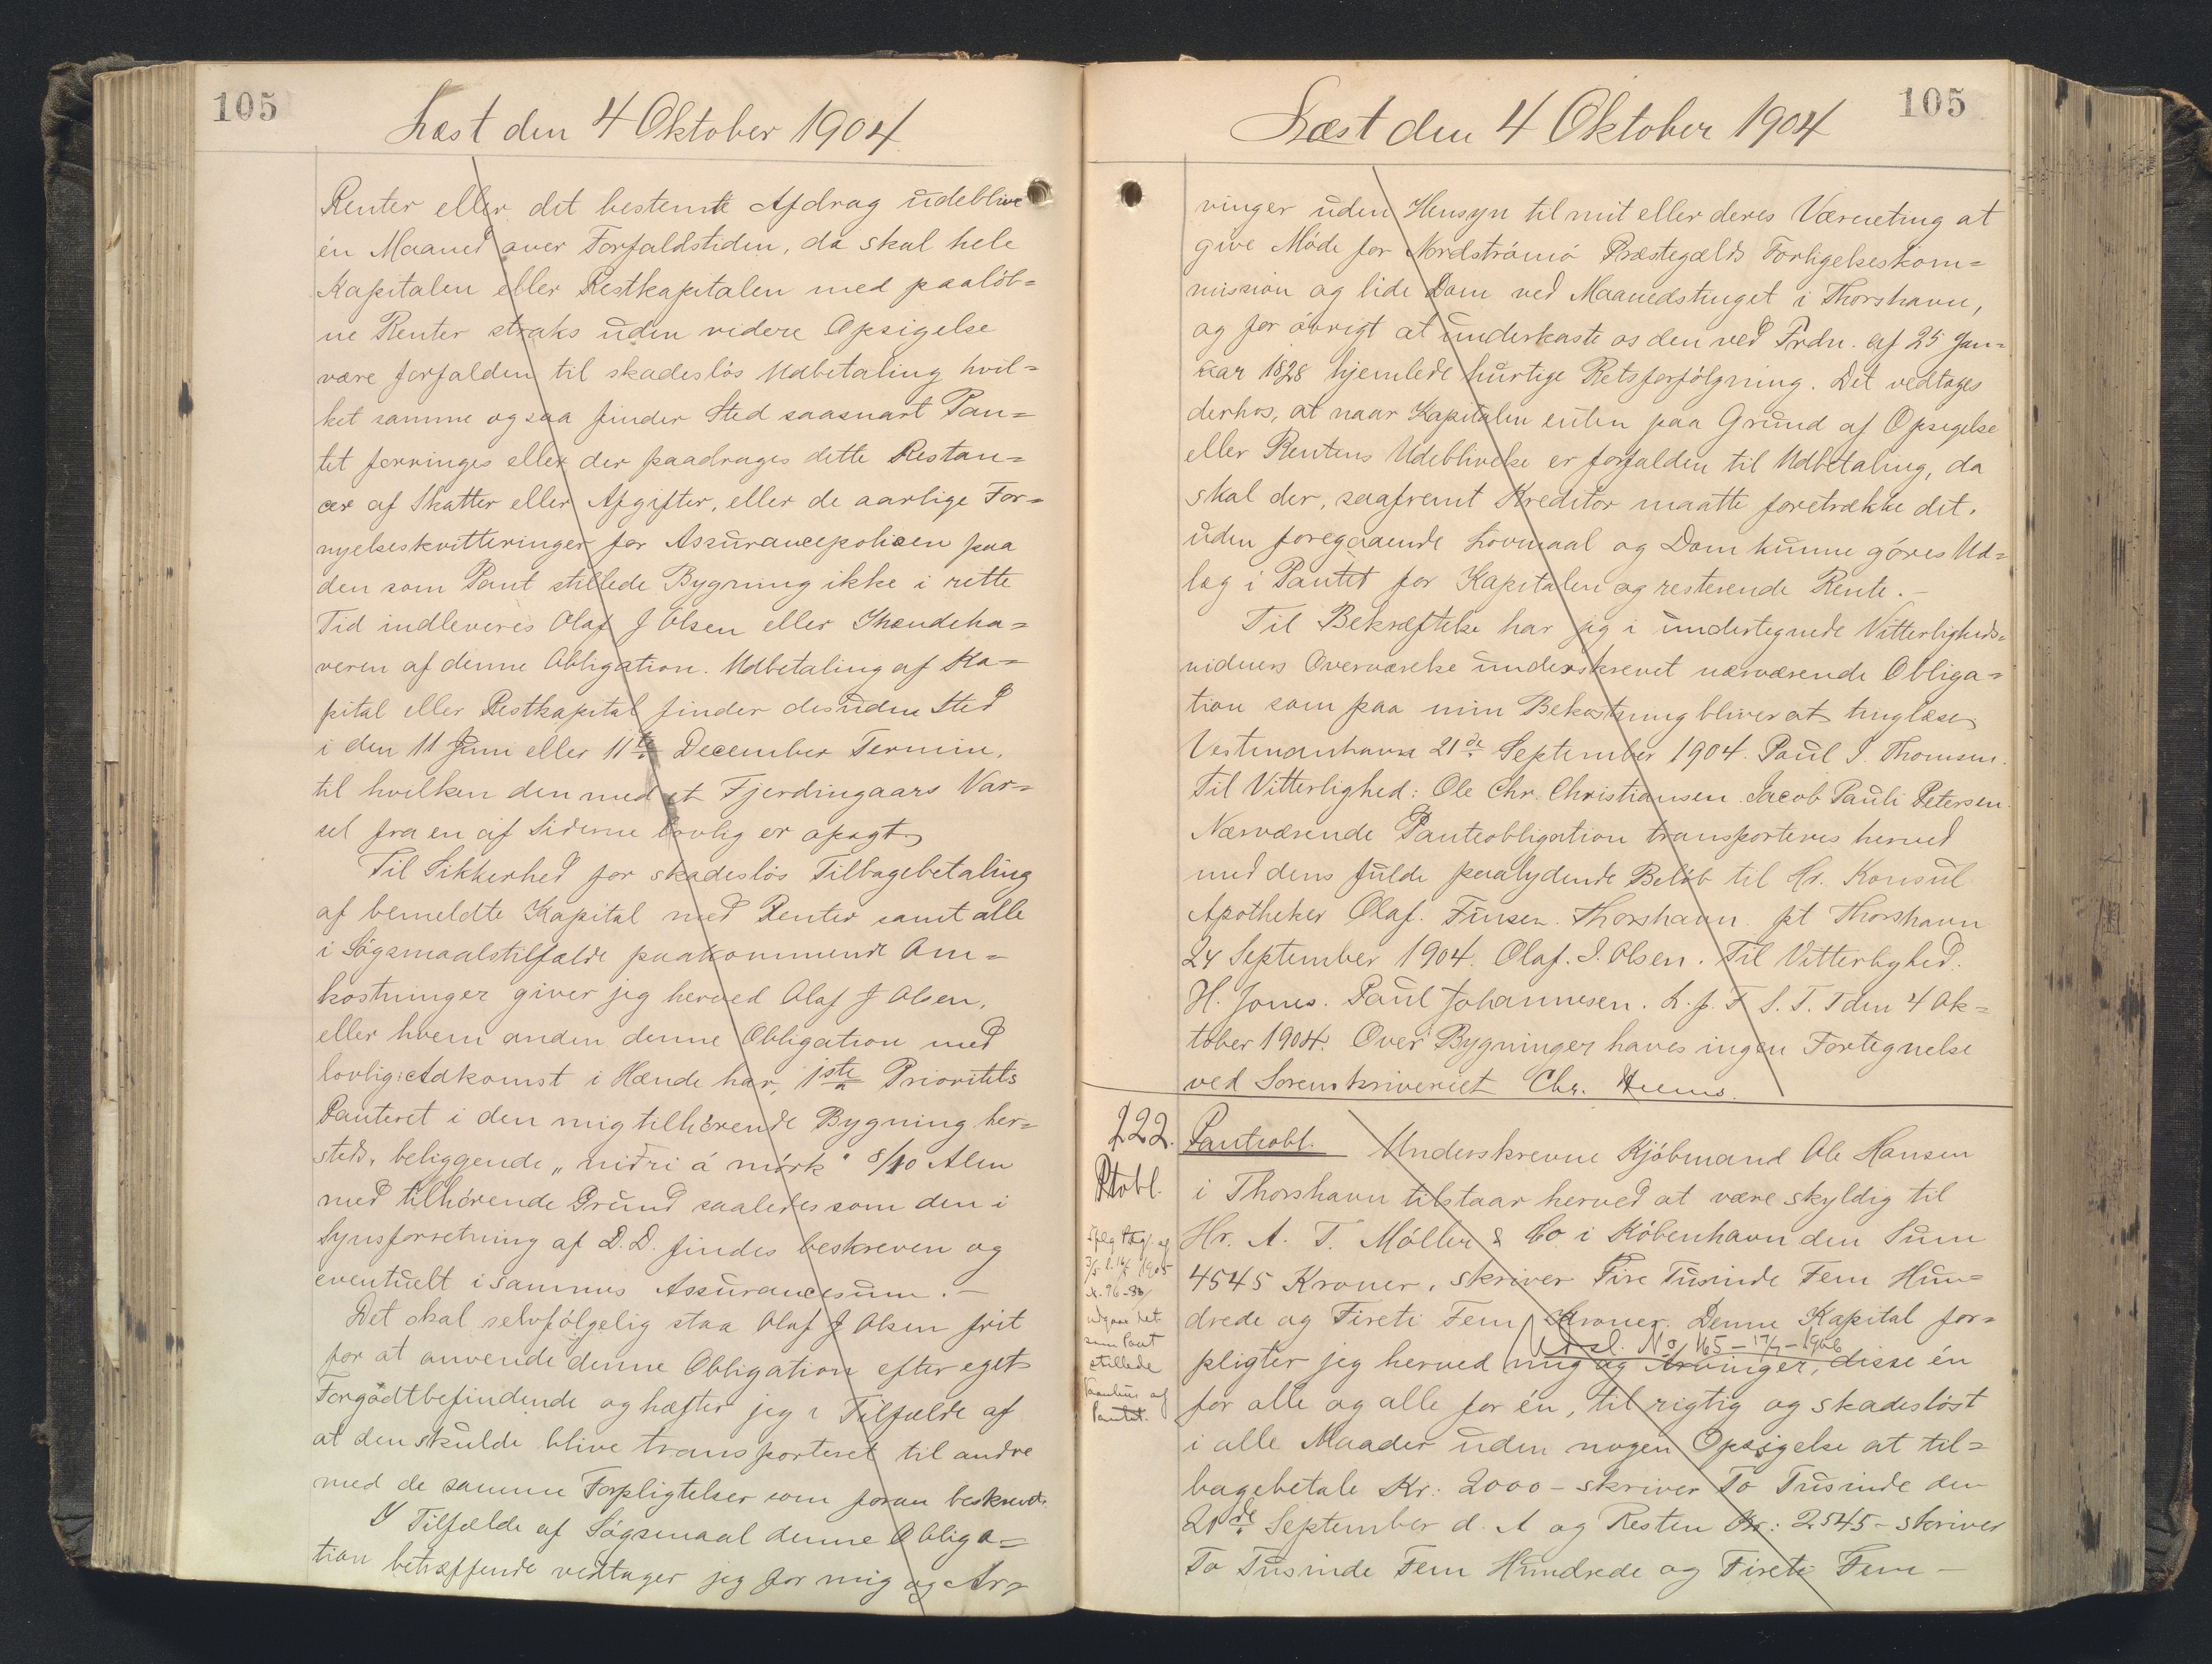 105
Læst den 4 Oktober 1904
Renter eller det bestemte Afdrag udeblive
én Maaned over Forfaldstiden, da skal hele
Kapitalen eller Restkapitalen med paaløb=
ne Renter straks uden videre Opsigelse
være forfalden til skadesløs Udbetaling hvil=
ket samme ogsaa finder Sted saasnart Pan=
tet forringes eller der paadrages dette Restan=
cer af Skatter eller Afgifter, eller de aarlige For=
nyelseskvitteringer for Assurancepolicen paa
den som Pant stillede Bygning ikke i rette
Tid indleveres Olaf J Olsen eller Ihændeha=
veren af denne Obligation. Udbetaling af Ka=
pital eller Restkapital finder desuden Sted
i den 11 Juni eller 11te December Termin,
til hvilken den med et Fjerdingaars Var=
sel fra en af Siderne lovlig er opsagt
Til Sikkerhed for skadesløs Tilbagebetaling
af bemeldte Kapital med Renter samt alle
i Søgsmaalstilfælde paakommende Om=
kostninger giver jeg herved Olaf J Olsen,
eller hvem anden denne Obligation med
lovlig Adkomst i Hænde har, 1ste Prioritets
Panteret i den mig tilhørende Bygning her=
steds, beliggende „niðri á mørk“ 8/10 Alen
med tilhørende Grund saaledes som den i
Synsforretning af D.D. findes beskreven og
eventuelt i sammes Assurancesum.—
Det skal selvfølgelig staa Olaf J Olsen frit
for at anvende denne Obligation efter eget
Forgodtbefindende og hæfter jeg i Tilfælde af
at den skulde blive transporteret til andre
med de samme Forpligtelser som foran beskrevet.
I Tilfælde af Søgsmaal denne Obliga=
tion betræffende vedtager jeg for mig og Ar=
105
Læst den 4 Oktober 1904
vinger uden Hensyn til mit eller deres Værneting at
give Møde for Nordstrømø Præstegælds Forligelseskom=
mission og lide Dom ved Maanedstinget i Thorshavn,
og for øvrigt at underkaste os den ved Frdn. af 25 Jan=
uar 1828 hjemlede hurtige Retsforfølgning. Det vedtages
derhos, at naar Kapitalen enten paa Grund af Opsigelse
eller Rentens Udeblivelse er forfalden til Udbetaling, da
skal der, saafremt Kreditor maatte foretrække det,
uden foregaaende Lovmaal og Dom kunne gøres Ud=
læg i Pantet for Kapitalen og resterende Rente.—
Til Bekræftelse har jeg i undertegnede Vitterligheds=
vidners Overværelse underskrevet nærværende Obliga=
tion som paa min Bekostning bliver at tinglæse
Vestmanhavn 21de September 1904. Paul J. Thomsen.
Til Vitterlighed: Ole Chr. Christiansen. Jacob Pauli Petersen.
Nærværende Panteobligation transporteres herved
med dens fulde paalydende Beløb til Hr. Konsul
Apotheker Olaf. Finsen. Thorshavn. pt Thorshavn
24 September 1904. Olaf. J. Olsen. Til Vitterlighed:
H. Jones. Paul Johannesen. L. f. F. S. T. T den 4 Ok=
tober 1904. Over Bygninger haves ingen Fortegnelse
ved Sorenskriveriet Chr.
222.
Ptobl.
1905
udgaar det
som Pant
stillede
af
Pantet.
Panteobl. Underskrevne Kjøbmand Ole Hansen
i Thorshavn tilstaar herved at være skyldig til
Hr. A. T. Møller & Co i København den Sum
4545 Kroner, skriver Fire Tusinde Fem Hun=
drede og Fireti Fem Kroner. Denne Kapital for=
Udsl. No 165 – 17/7 – 1906
pligter jeg herved mig og Arvinger, disse én
for alle og alle for én, til rigtig og skadesløst
i alle Maader uden nogen Opsigelse at til=
bagebetale Kr: 2000 – skriver To Tusinde den
20de September d. A og Resten Kr: 2545 – skriver
To Tusinde Fem Hundrede og Fireti Fem –